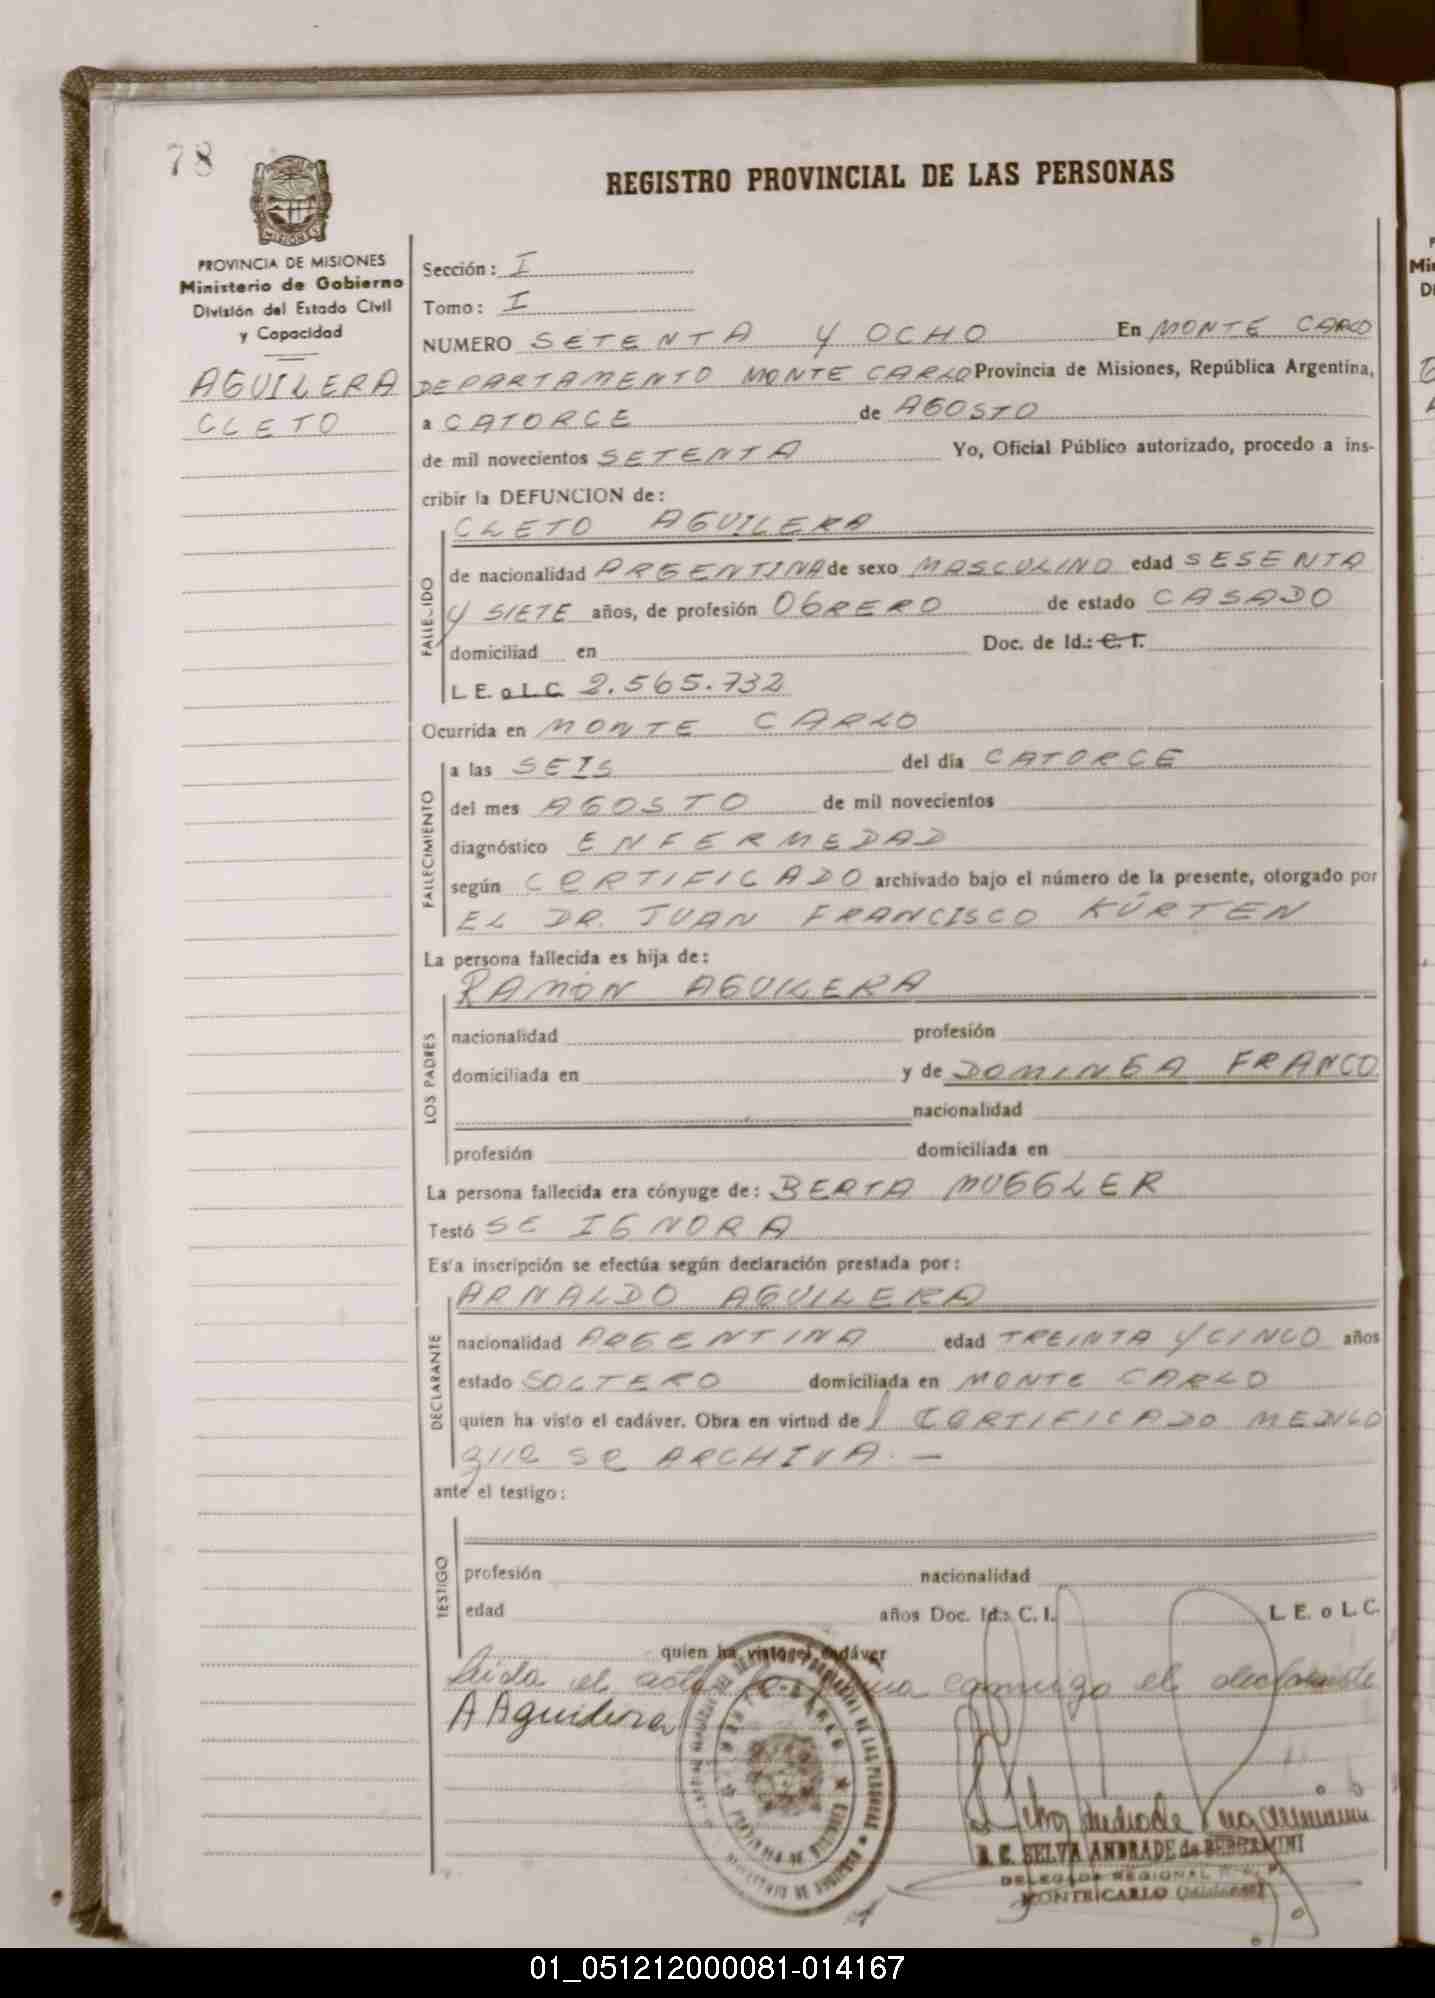 78
REGISTRO PROVINCIAL DE LAS PERSONAS
MISIONES
PROVINCIA DE MISIONES
Ministerio de Gobierno
División del Estado Civil
y Capacidad
AGUILERA
CLETO
Sección: I
Tomo: I
NUMERO SETENTA Y OCHO En MONTE CARLO
DEPARTAMENTO MONTE CARLO Provincia de Misiones, República Argentina,
a CATORCE de AGOSTO
de mil novecientos SETENTA Yo, Oficial Público autorizado, procedo a ins-
cribir la DEFUNCION de:
CLETO AGUILERA
FALLECIDO
de nacionalidad ARGENTINA de sexo MASCULINO edad SESENTA
Y SIETE años, de profesión OBRERO de estado CASADO
domiciliad en Doc. de Id.: C. I.
L. E. o L. C. 2.565.732
Ocurrida en MONTE CARLO
FALLECIMIENTO
a las SEIS del día CATORCE
del mes AGOSTO de mil novecientos
diagnóstico ENFERMEDAD
según CERTIFICADO archivado bajo el número de la presente, otorgado por
EL DR. JUAN FRANCISCO KÜRTEN
La persona fallecida es hija de:
RAMÓN AGUILERA
LOS PADRES
nacionalidad profesión
domiciliada en y de DOMINGA FRANCO
nacionalidad
profesión domiciliada en
La persona fallecida era cónyuge de: BERTA MUGGLER
Testó SE IGNORA
Esta inscripción se efectúa según declaración prestada por:
ARNALDO AGUILERA
DECLARANTE
nacionalidad ARGENTINA edad TREINTA Y CINCO años
estado SOLTERO domiciliada en MONTE CARLO
quien ha visto el cadáver. Obra en virtud del CERTIFICADO MEDICO
que se ARCHIVA. —
ante el testigo:
TESTIGO
profesión nacionalidad
edad años Doc. Id.: C. I. L. E. o L. C.
quien ha visto el cadáver
Leida el acta firma conmigo el declarante
A Aguilera
SELVA ANDRADE de BERGAMINI
DELEGADA REGIONAL
MONTECARLO (Misiones)
01_051212000081-014167